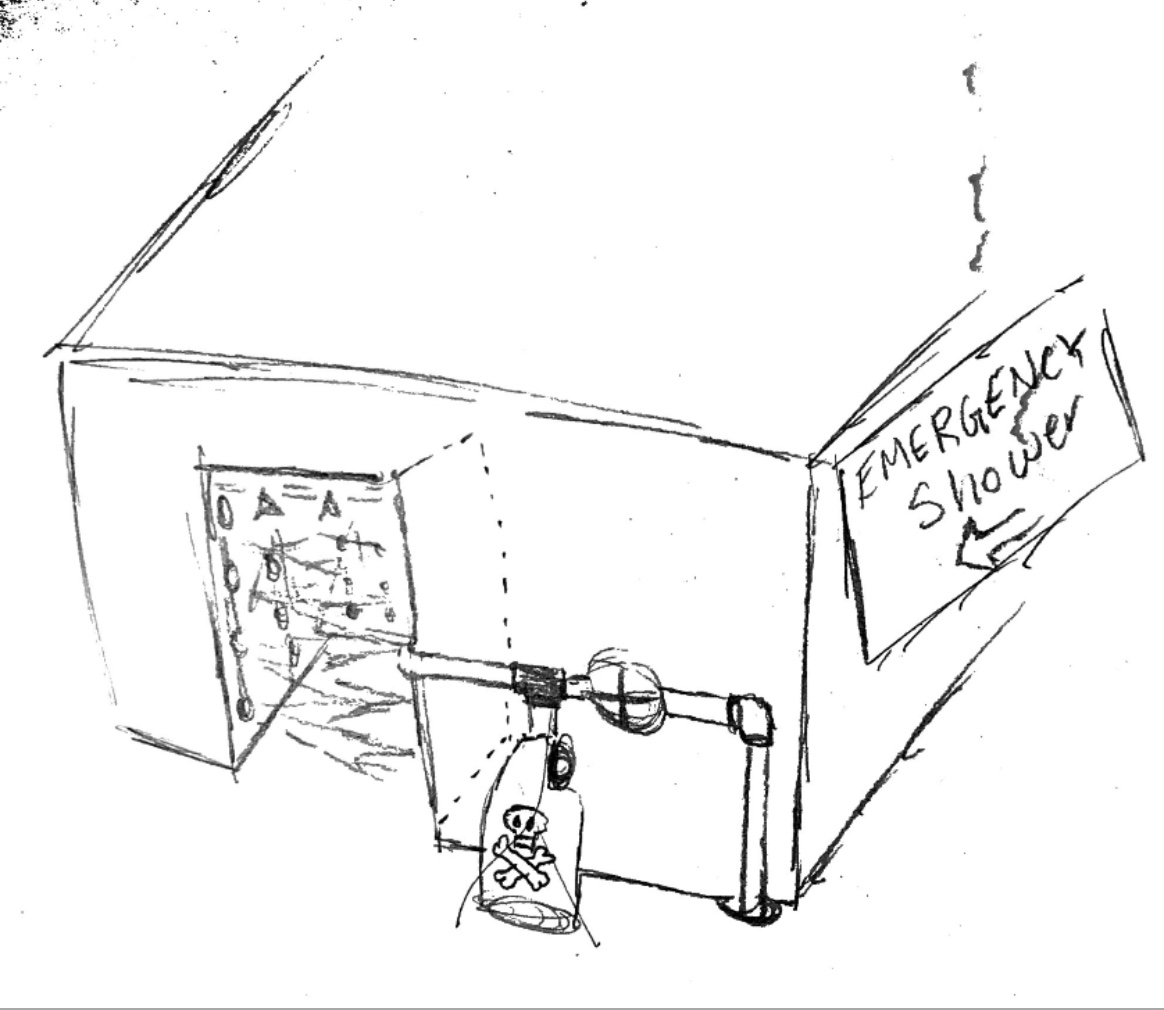 EMERGENCY
Shower